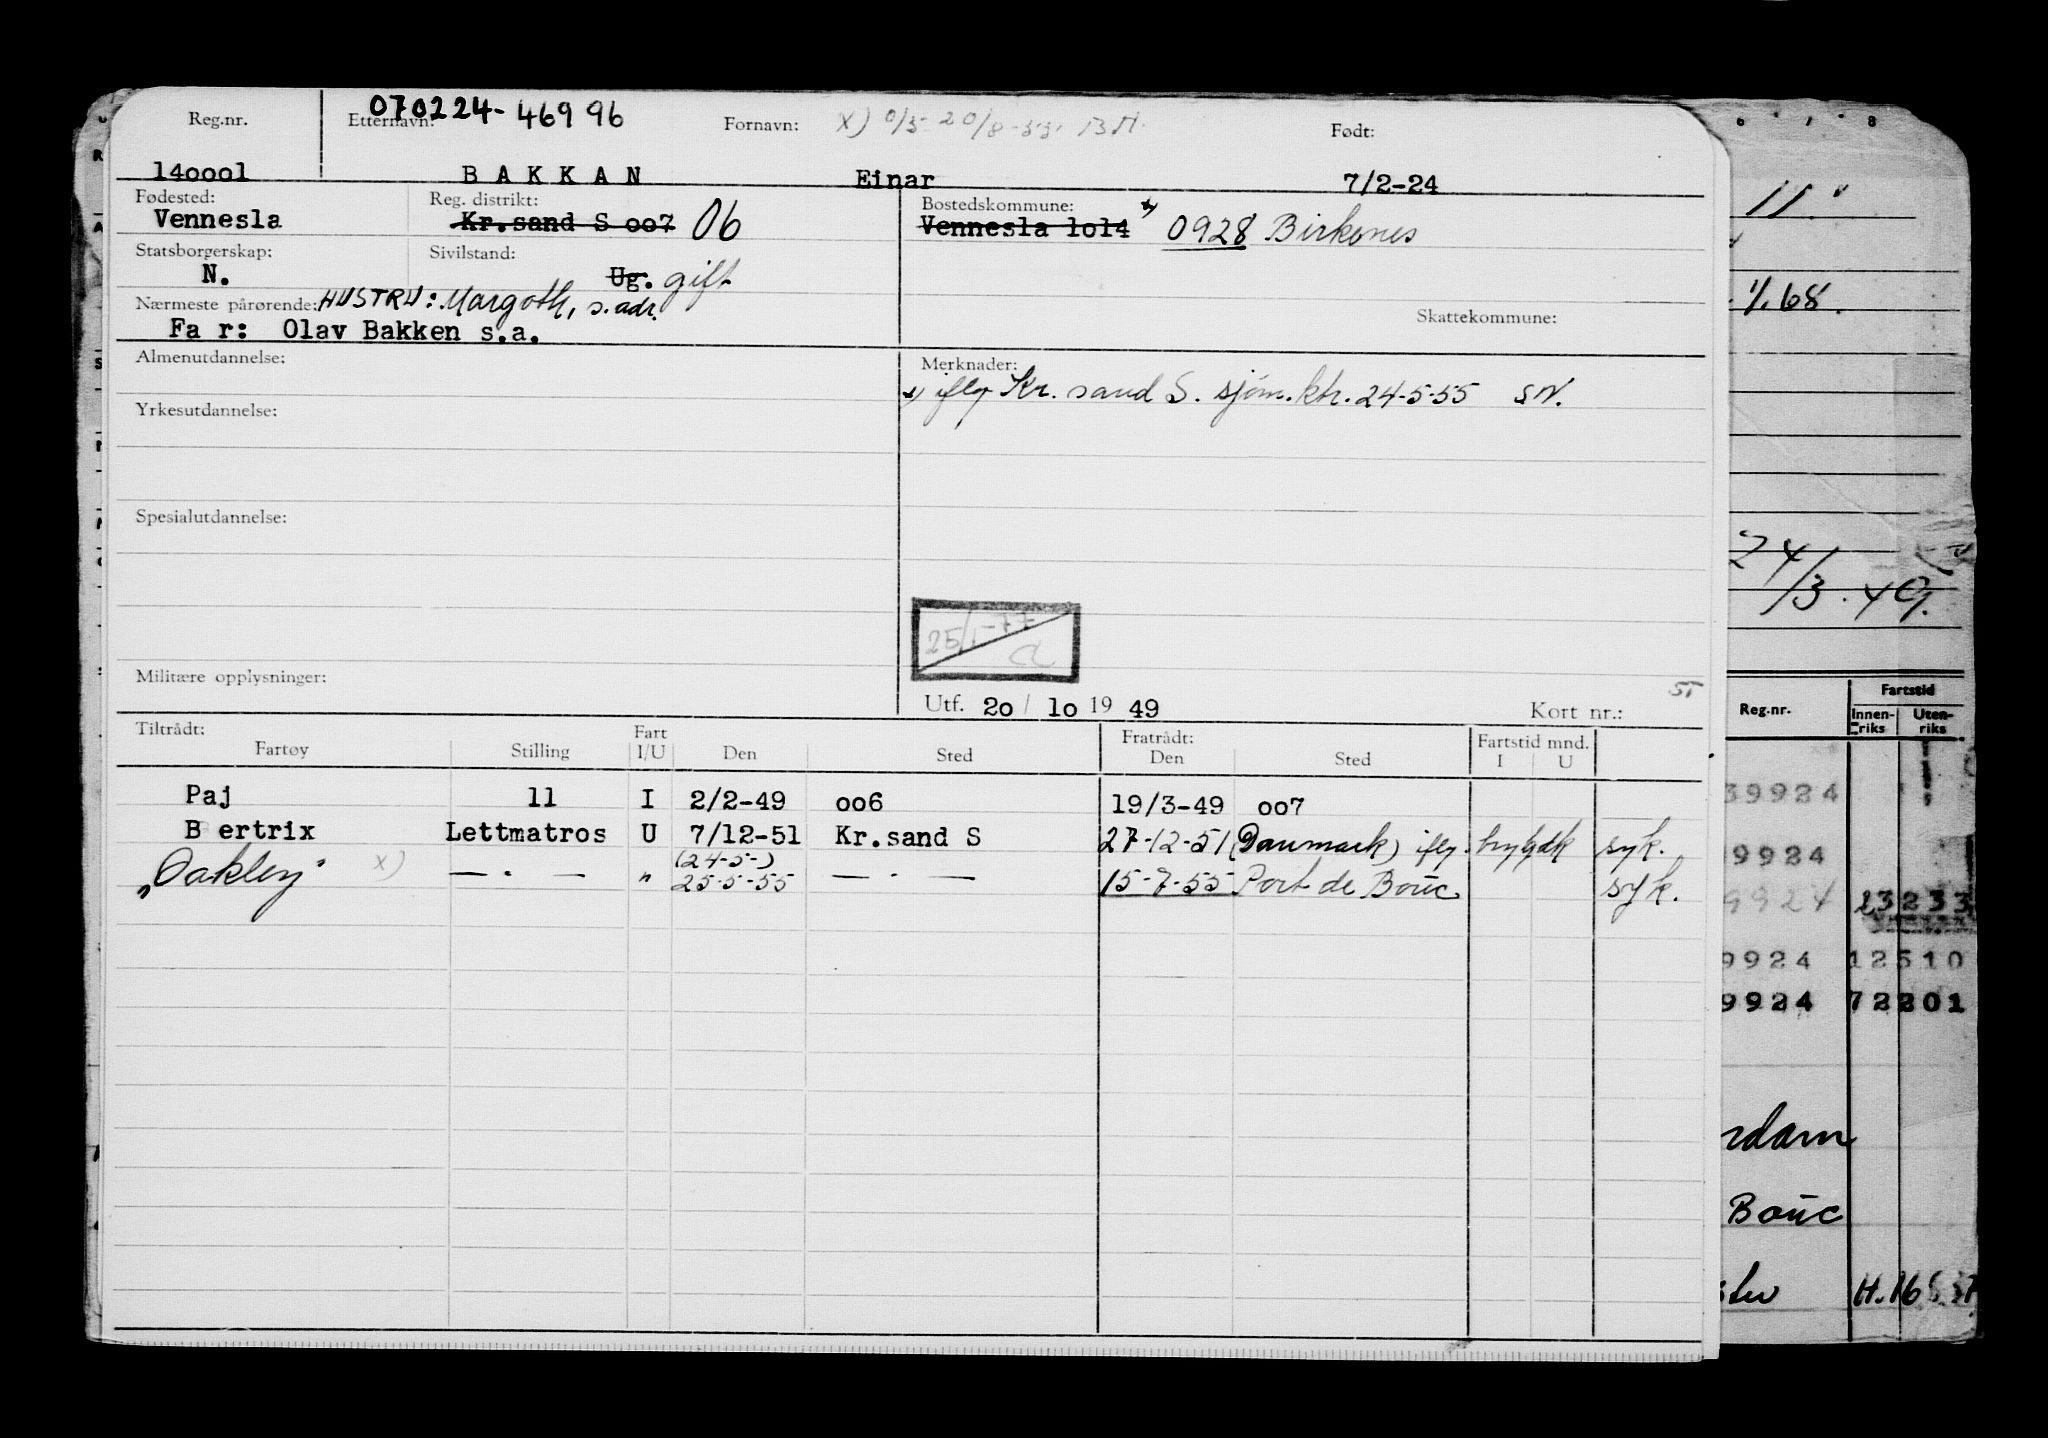 070224-46996
Reg.nr. Etternavn: Fornavn: x) 0/5 20/8-53. Født:
140001 BAKKAN Einar 7/2-24
Fødested: Reg. distrikt: Bostedskommune:
Vennesla Kr.sand S 007 06 Vennesla 1014 x) 0928 Birkenes
Statsborgerskap: Sivilstand:
N. Ug. gift
Nærmeste pårørende: HUSTRU: Margoth, s. adr. Skattekommune:
Fa r: Olav Bakken s.a.
Almenutdannelse: Merknader:
x) iflg Kr. sand S. sjøm.ktr. 24-5-55 SN.
Yrkesutdannelse:
Spesialutdannelse:
25/1-77
CL
Militære opplysninger:
Utf. 20 / 10 19 49 Kort nr.:
Tiltrådt: Fart Fratrådt: Fartstid mnd.
Fartøy Stilling I/U Den Sted Den Sted I U
Paj 11 I 2/2-49 006 19/3-49 007
B ertrix Lettmatros U 7/12-51 Kr.sand S 27-12-51 (Danmark) iflg. syk.
(24-5-)
"Oakley" x) — . — " 25-5-55 — . — 15-7-55 Port de Bouc syk.
6 . 1 . 8
11.
1/1.68.
24/3.49.
Reg.nr. Fartstid
Innenriks Utenriks
39924
9924
9924 23233
9924 12510
9924 72201
rdam
Bouc
H.16